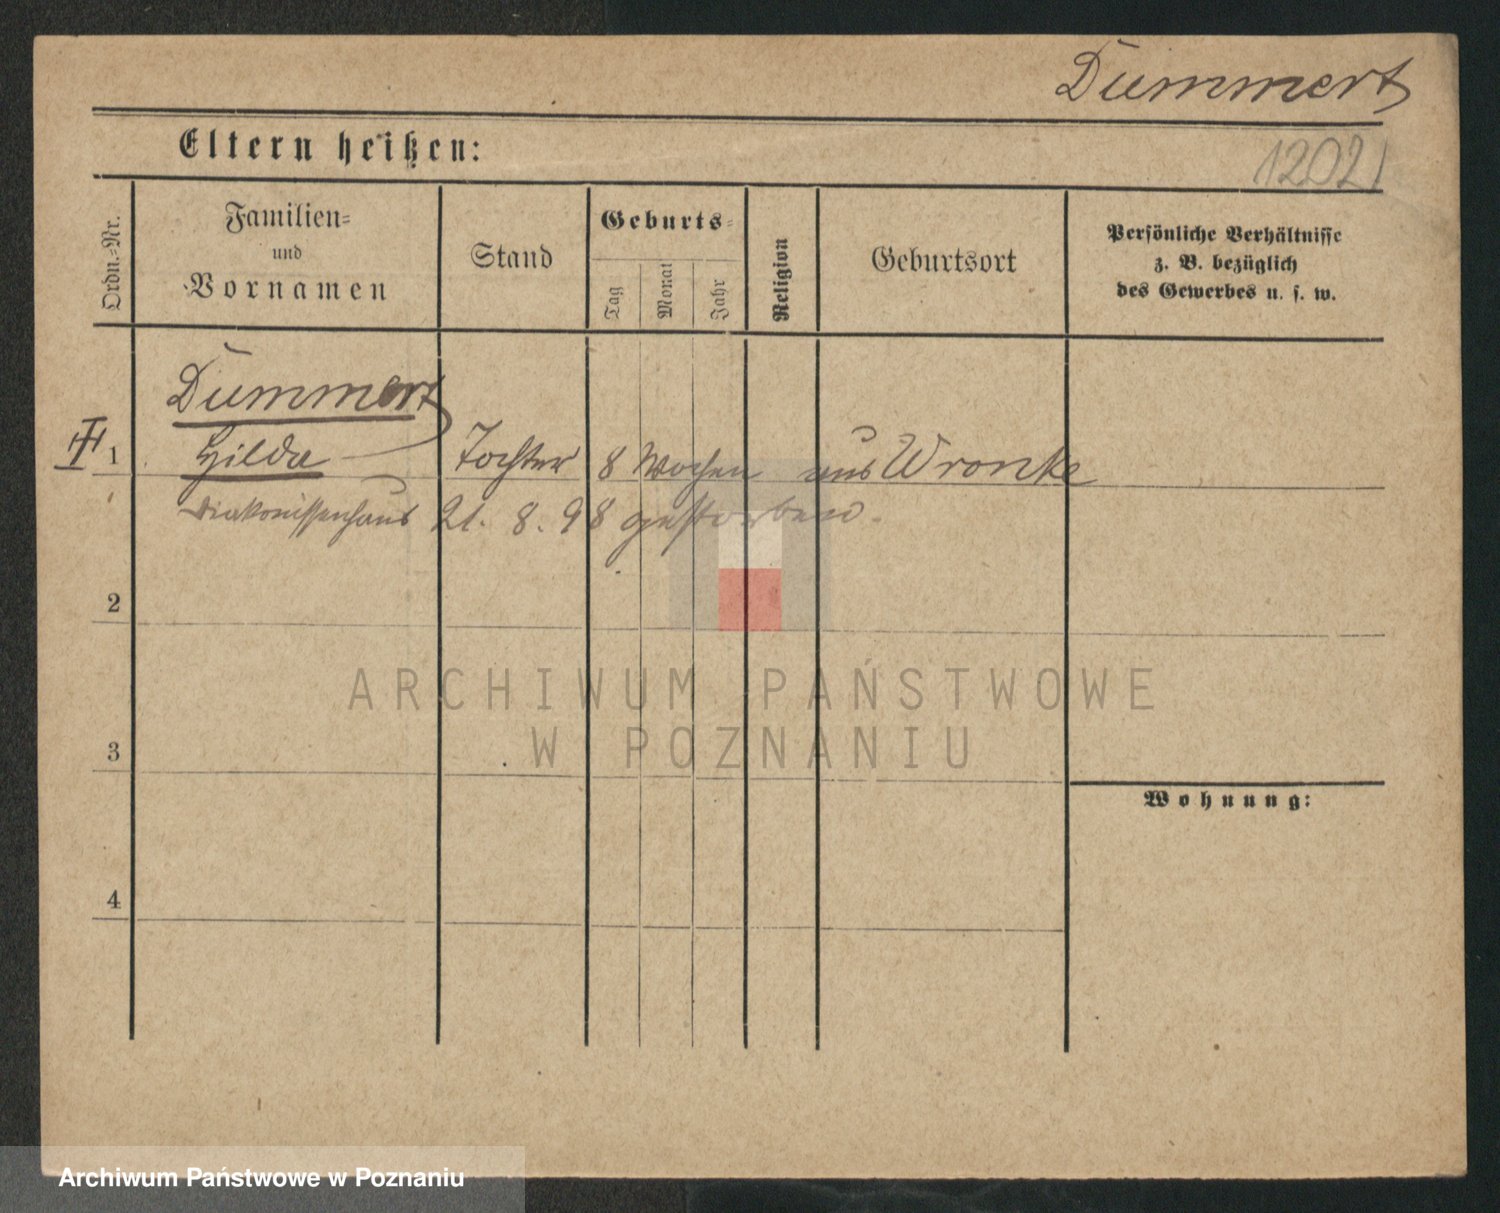 Dummert
Eltern heißen:
1202
Ordn.=Nr.
Familien=
und
Vornamen
Stand
Geburts=
Tag
Monat
Jahr
Religion
Geburtsort
Persönliche Verhältnisse
z. B. bezüglich
des Gewerbes u. s. w.
Dummert
1 Hilda Tochter 8 Wochen aus Wronke
Diakonissenhaus 21. 8. 98 gestorben.
2
ARCHIWUM PAŃSTWOWE
W POZNANIU
3
Wohnung:
4
Archiwum Państwowe w Poznaniu